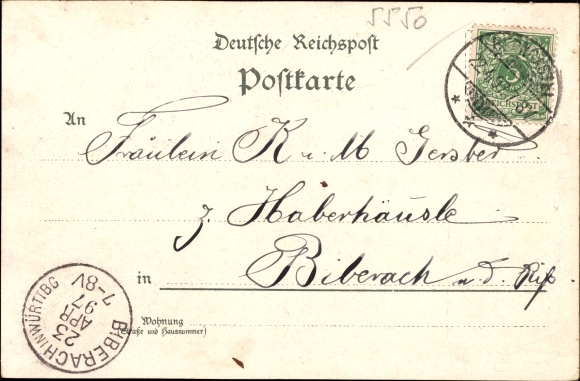 5550
Deutsche Reichspost
Postkarte
An
Fräulein K u. M Gerster
z. Haberhäusle
in Biberach a. d. Riß
Wohnung
(Straße und Hausnummer)
BIBERACH IN WÜRTTBG
23
APR
97
7-8V
REICHSPOST